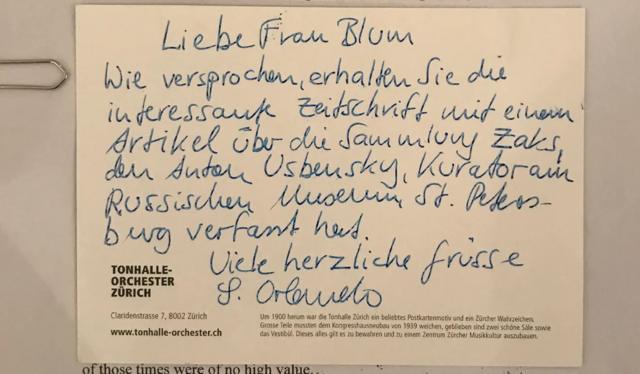 Liebe Frau Blum
Wie versprochen, erhalten Sie die
interessante Zeitschrift mit einem
Artikel über die Sammlung Zaks,
den Anton Usbensky, Kurator am
Russischen Museum, St. Peters-
burg verfasst hat.
Viele herzliche Grüsse
S. Orlando
TONHALLE-
ORCHESTER
ZÜRICH
Claridenstrasse 7, 8002 Zürich
www.tonhalle-orchester.ch
Um 1900 herum war die Tonhalle Zürich ein beliebtes Postkartenmotiv und ein Zürcher Wahrzeichen.
Grosse Teile mussten dem Kongresshausneubau von 1939 weichen, geblieben sind zwei schöne Säle sowie
das Vestibül. Dieses alles gilt es zu bewahren und zu einem Zentrum Zürcher Musikkultur auszubauen.
of those times were of no high value.